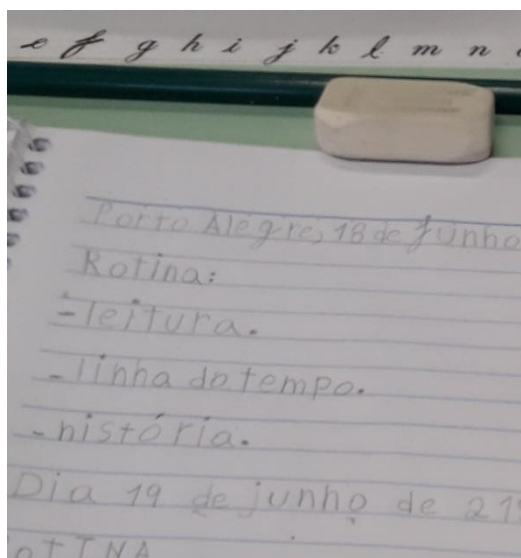 e f g h i j k l m n
Porto Alegre, 18 de junho
Rotina:
- leitura.
- linha do tempo.
- história.
Dia 19 de junho de 21
otINA